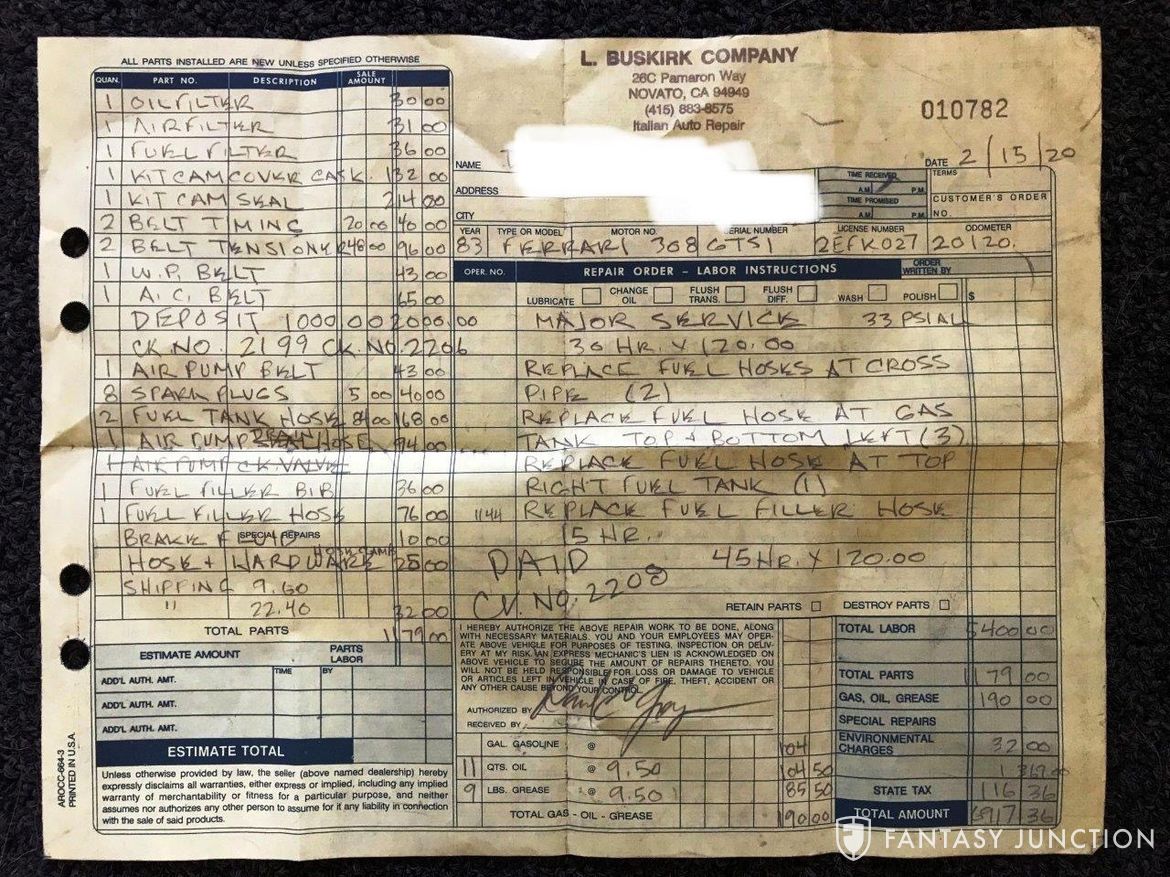 ALL PARTS INSTALLED ARE NEW UNLESS SPECIFIED OTHERWISE
QUAN. PART NO. DESCRIPTION SALE AMOUNT
1 OIL FILTER 30 00
1 AIR FILTER 31 00
1 FUEL FILTER 36 00
1 KIT CAM COVER GASK. 132 00
1 KIT CAM SEAL 214 00
2 BELT TIMING 20 00 40 00
2 BELT TENSIONER 48 00 96 00
1 W.P. BELT 43 00
1 A.C. BELT 65 00
DEPOSIT 1000 00 2000.00
CK NO. 2199 CK. NO. 2206
1 AIR PUMP BELT 43 00
8 SPARK PLUGS 5 00 40 00
2 FUEL TANK HOSE 84 00 168 00
1 AIR PUMP HOSE 94 00
1 AIR PUMP CK VALVE
1 FUEL FILLER BIB 36 00
1 FUEL FILLER HOSE 76 00
SPECIAL REPAIRS
BRAKE FLUID 10 00
HOSE + HARDWARE HOSE CLAMPS 25 00
SHIPPING 9.60
" 22.40 32 00
TOTAL PARTS 1179 00
ESTIMATE AMOUNT PARTS LABOR
TIME BY
ADD'L AUTH. AMT.
ADD'L AUTH. AMT.
ADD'L AUTH. AMT.
ESTIMATE TOTAL
Unless otherwise provided by law, the seller (above named dealership) hereby
expressly disclaims all warranties, either express or implied, including any implied
warranty of merchantability or fitness for a particular purpose, and neither
assumes nor authorizes any other person to assume for it any liability in connection
with the sale of said products.
AROCC-664-3
PRINTED IN U.S.A.
L. BUSKIRK COMPANY
26C Pamaron Way
NOVATO, CA 94949
(415) 883-8575
Italian Auto Repair
010782
NAME
DATE 2/15/20
ADDRESS
TIME RECEIVED A.M. P.M.
TERMS
TIME PROMISED A.M. P.M.
CUSTOMER'S ORDER NO.
CITY
YEAR TYPE OR MODEL MOTOR NO. SERIAL NUMBER LICENSE NUMBER ODOMETER
83 FERRARI 308 GTSI 2EFK027 20120.
OPER. NO. REPAIR ORDER – LABOR INSTRUCTIONS ORDER WRITTEN BY
LUBRICATE CHANGE OIL FLUSH TRANS. FLUSH DIFF. WASH POLISH $
MAJOR SERVICE 33 PSI ALL
30 HR. X 120.00
REPLACE FUEL HOSES AT CROSS
PIPE (2)
REPLACE FUEL HOSE AT GAS
TANK TOP + BOTTOM LEFT (3)
REPLACE FUEL HOSE AT TOP
RIGHT FUEL TANK (1)
1144 REPLACE FUEL FILLER HOSE
15 HR.
PAID 45 HR. X 120.00
CK. NO. 2208
RETAIN PARTS DESTROY PARTS
I HEREBY AUTHORIZE THE ABOVE REPAIR WORK TO BE DONE, ALONG
WITH NECESSARY MATERIALS. YOU AND YOUR EMPLOYEES MAY OPER-
ATE ABOVE VEHICLE FOR PURPOSES OF TESTING, INSPECTION OR DELIV-
ERY AT MY RISK. AN EXPRESS MECHANIC'S LIEN IS ACKNOWLEDGED ON
ABOVE VEHICLE TO SECURE THE AMOUNT OF REPAIRS THERETO. YOU
WILL NOT BE HELD RESPONSIBLE FOR LOSS OR DAMAGE TO VEHICLE
OR ARTICLES LEFT IN VEHICLE IN CASE OF FIRE, THEFT, ACCIDENT OR
ANY OTHER CAUSE BEYOND YOUR CONTROL.
AUTHORIZED BY
RECEIVED BY
GAL. GASOLINE @ 104
11 QTS. OIL @ 9.50 104 50
9 LBS. GREASE @ 9.50 85 50
TOTAL GAS - OIL - GREASE 190 00
TOTAL LABOR 5400 00
TOTAL PARTS 1179 00
GAS, OIL, GREASE 190 00
SPECIAL REPAIRS
ENVIRONMENTAL CHARGES 32 00
1369 00
STATE TAX 116 36
TOTAL AMOUNT 6917 36
FANTASY JUNCTION